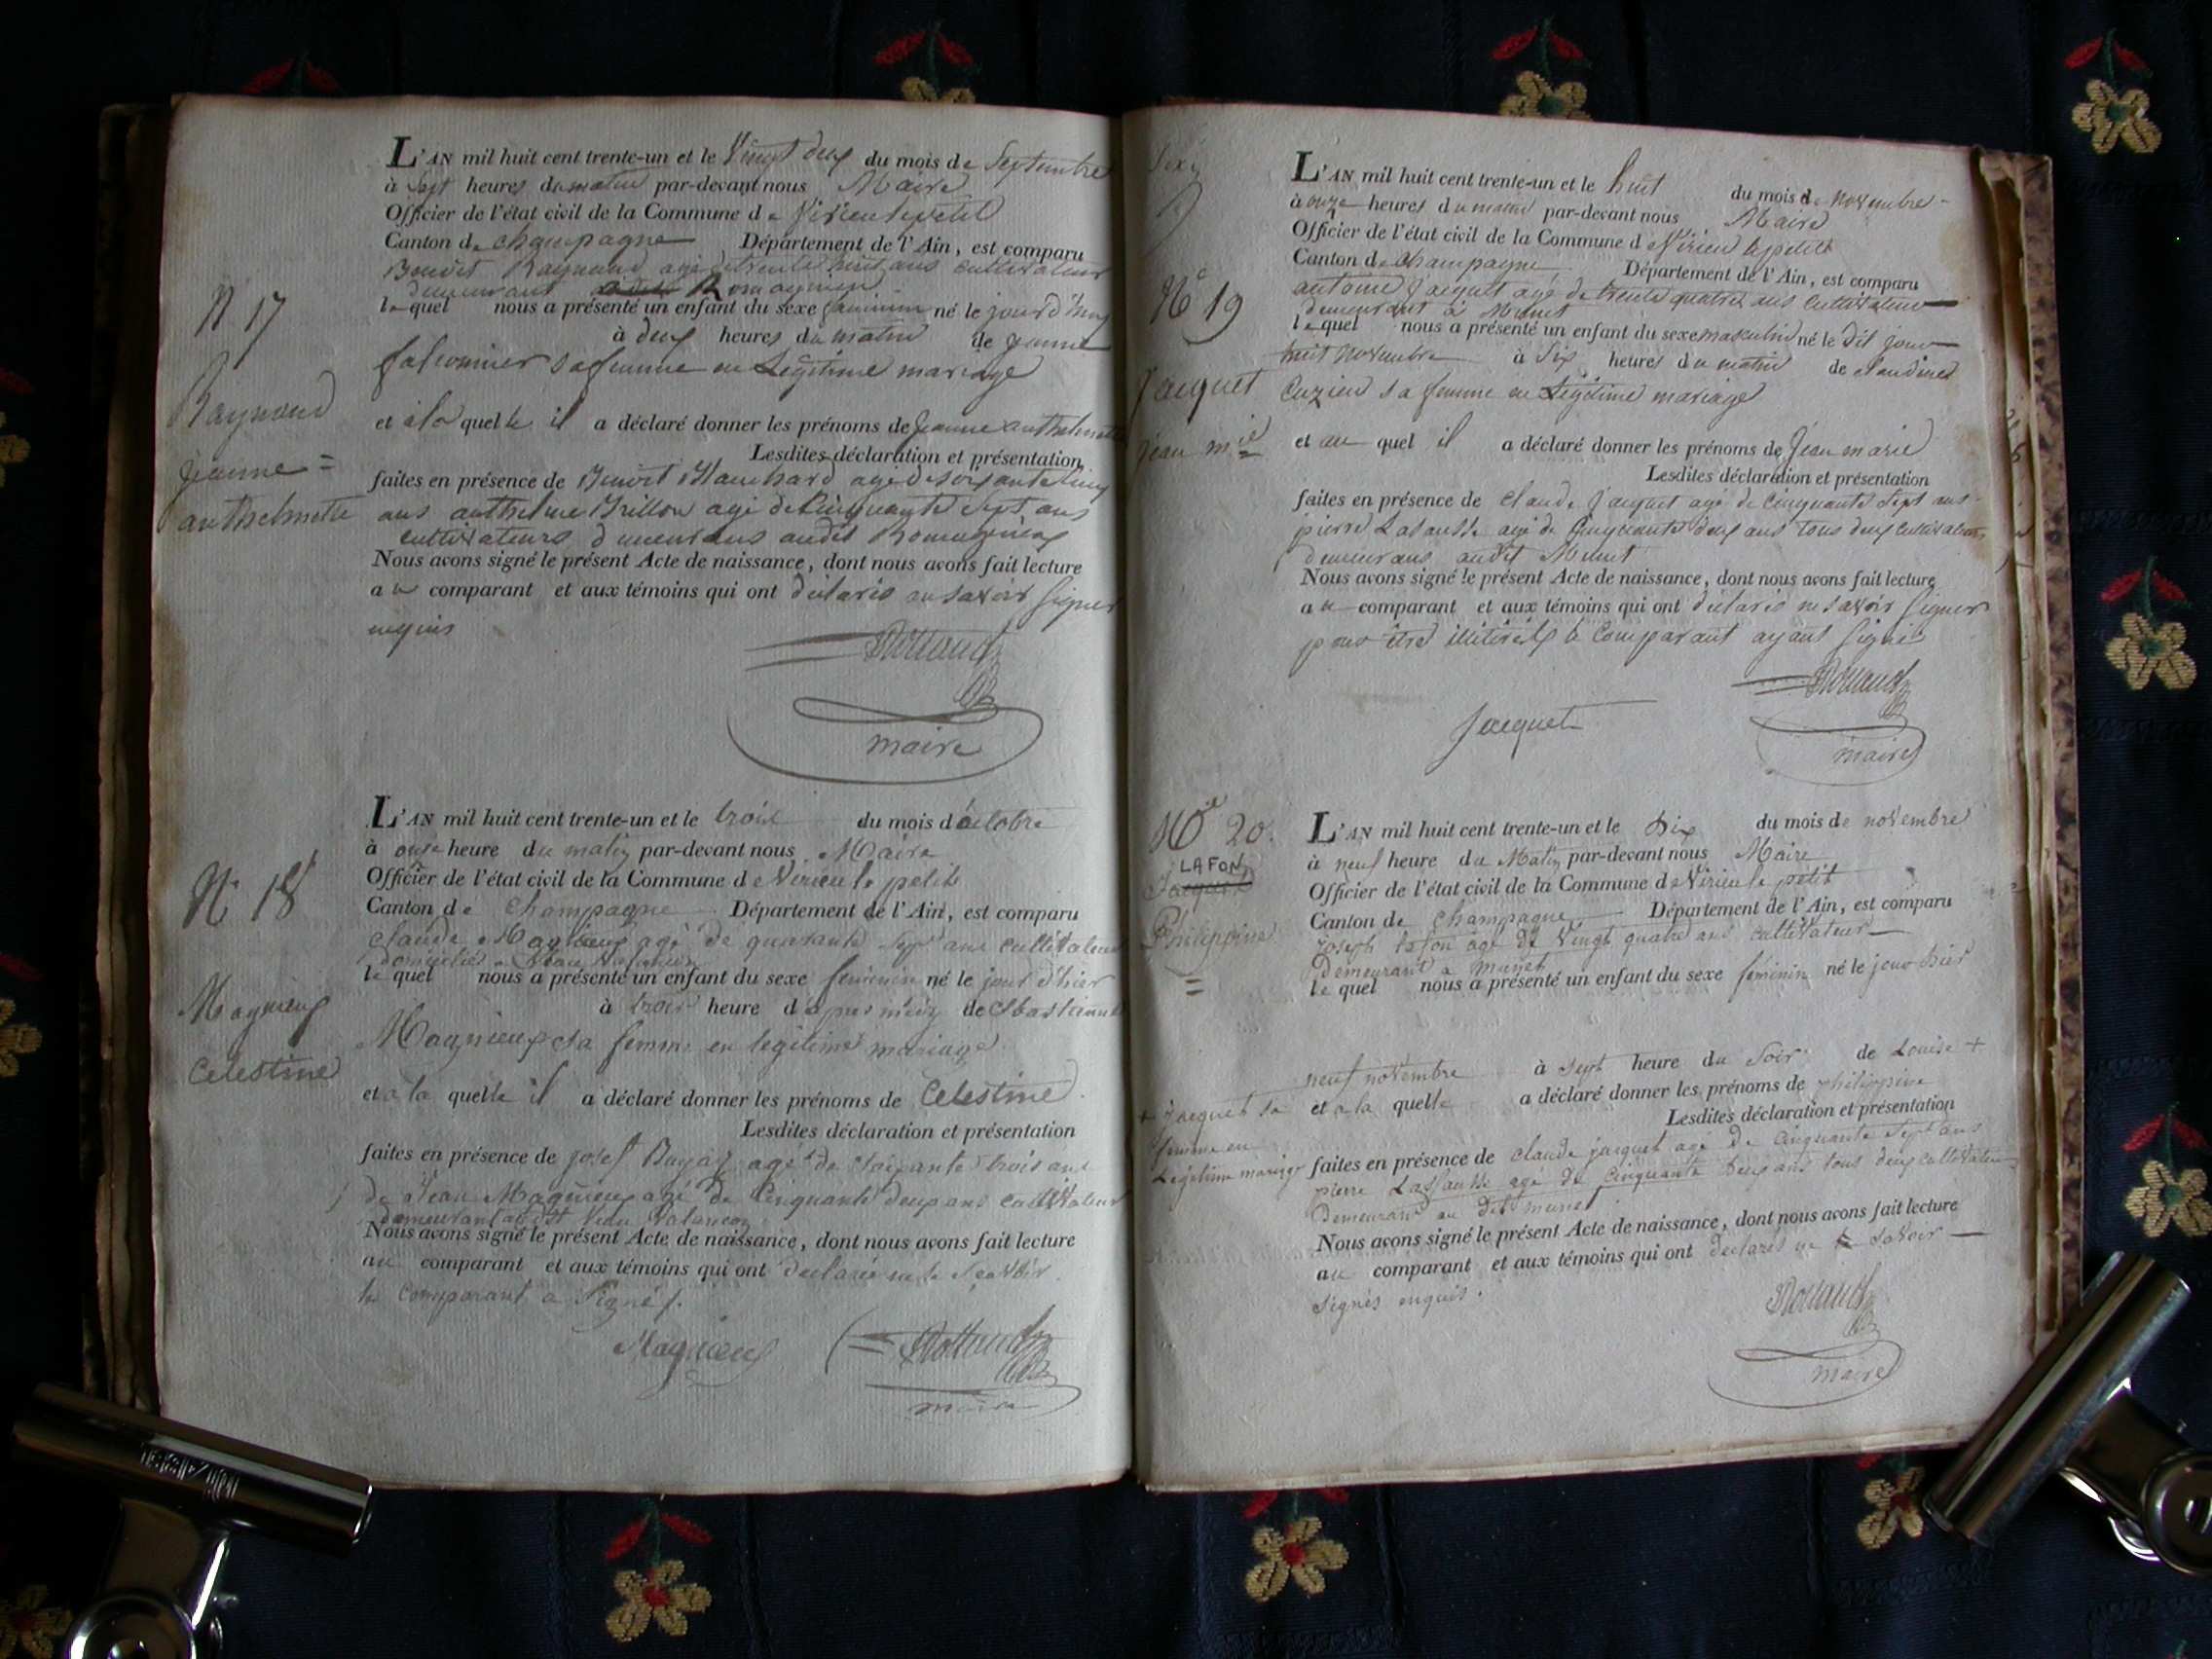 L'AN mil huit cent trente-un et le Vingt deux du mois de Septembre
à Sept heures du matin par-devant nous Maire
Officier de l'état civil de la Commune de Virieu lepetit
Canton de champagne Département de l'Ain, est comparu
Benoit Raymond agé de trente huit ans cultivateur
demeurant Romagnieu
le quel nous a présenté un enfant du sexe feminin né le jourd'huy
N 17
à deux heures du matin de jeanne
falconnier sa femme en Legitime mariage
Raymond
jeanne =
anthelmette
et a la quelle il a déclaré donner les prénoms de jeanne anthelmette
Lesdites déclaration et présentation
faites en présence de Benoit Blanchard agé de soixante cinq
ans anthelme Brillon agé de Cinquante Sept ans
cultivateurs demeurans audit Romagnieu
Nous avons signé le présent Acte de naissance, dont nous avons fait lecture
au comparant et aux témoins qui ont déclaré ne savoir signer
enquis
maire
L'AN mil huit cent trente-un et le trois du mois d'octobre
à onze heure du matin par-devant nous Maire
Officier de l'état civil de la Commune de Virieu le petit
N° 18
Canton de Champagne Département de l'Ain, est comparu
claude Magnieux agé de quarante sept ans cultivateur
domicilié
le quel nous a présenté un enfant du sexe feminin né le jour d'hier
à trois heure de
Magnieux
Celestine
Magnieux sa femme en legitime mariage
et a la quelle il a déclaré donner les prénoms de Celestine
Lesdites déclaration et présentation
faites en présence de josef agé de soixante trois ans
de Jean Magnieux agé de Cinquante deux ans cultivateur
demeurant
Nous avons signé le présent Acte de naissance, dont nous avons fait lecture
au comparant et aux témoins qui ont declarés ne le scavoir
le comparant a Signé
Magnieux
maire
L'AN mil huit cent trente-un et le huit du mois de novembre
à onze heures du matin par-devant nous Maire
Officier de l'état civil de la Commune de Virieu le petit
Canton de champagne Département de l'Ain, est comparu
N° 19
antoine jacquet agé de trente quatre ans cultivateur
demeurant à Munet
le quel nous a présenté un enfant du sexe masculin né le dit jour
huit novembre à Six heures du matin de claudine
Jacquet
jean mie
Cuzieu sa femme en Légitime mariage
et au quel il a déclaré donner les prénoms de jean marie
Lesdites déclaration et présentation
faites en présence de claude jacquet agé de Cinquante Sept ans
pierre Lasausse agé de Cinquante deux ans tous deux cultivateurs
demeurans audit Munet
Nous avons signé le présent Acte de naissance, dont nous avons fait lecture
au comparant et aux témoins qui ont déclaré ne savoir signer
pour être illitérés le Comparant ayant signé
Jacquet
maire
N° 20
LAFON
Jacquet
Philippine
=
L'AN mil huit cent trente-un et le Dix du mois de novembre
à neuf heure du Matin par-devant nous Maire
Officier de l'état civil de la Commune de Virieu le petit
Canton de Champagne Département de l'Ain, est comparu
joseph lafon agé de Vingt quatre ans cultivateur
demeurant a munet
le quel nous a présenté un enfant du sexe féminin né le jour hier
neuf novembre à sept heure du Soir de Louise +
+ jacquet sa
femme en
Legitime mariage
et a la quelle a déclaré donner les prénoms de philippine
Lesdites déclaration et présentation
faites en présence de claude jacquet agé de Cinquante Sept ans
pierre Lasausse agé de Cinquante deux ans tous deux cultivateur
demeurant au dit munet
Nous avons signé le présent Acte de naissance, dont nous avons fait lecture
au comparant et aux témoins qui ont declarés ne savoir
signés enquis.
maire